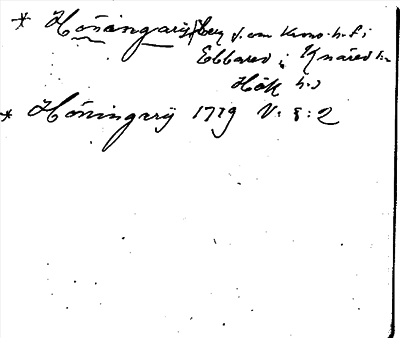 * Höningarÿberg s. om Krono-h. f. i
Ebbared i Knäred sn
Hök h.d
* Höningarÿ 1729 V: 8: 2